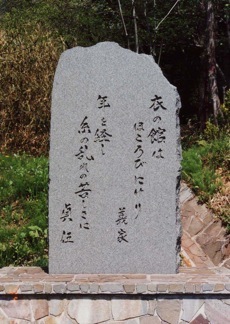 衣の館は
ほころびにけり
義家
年を経し
糸の乱れの苦しさに
貞任